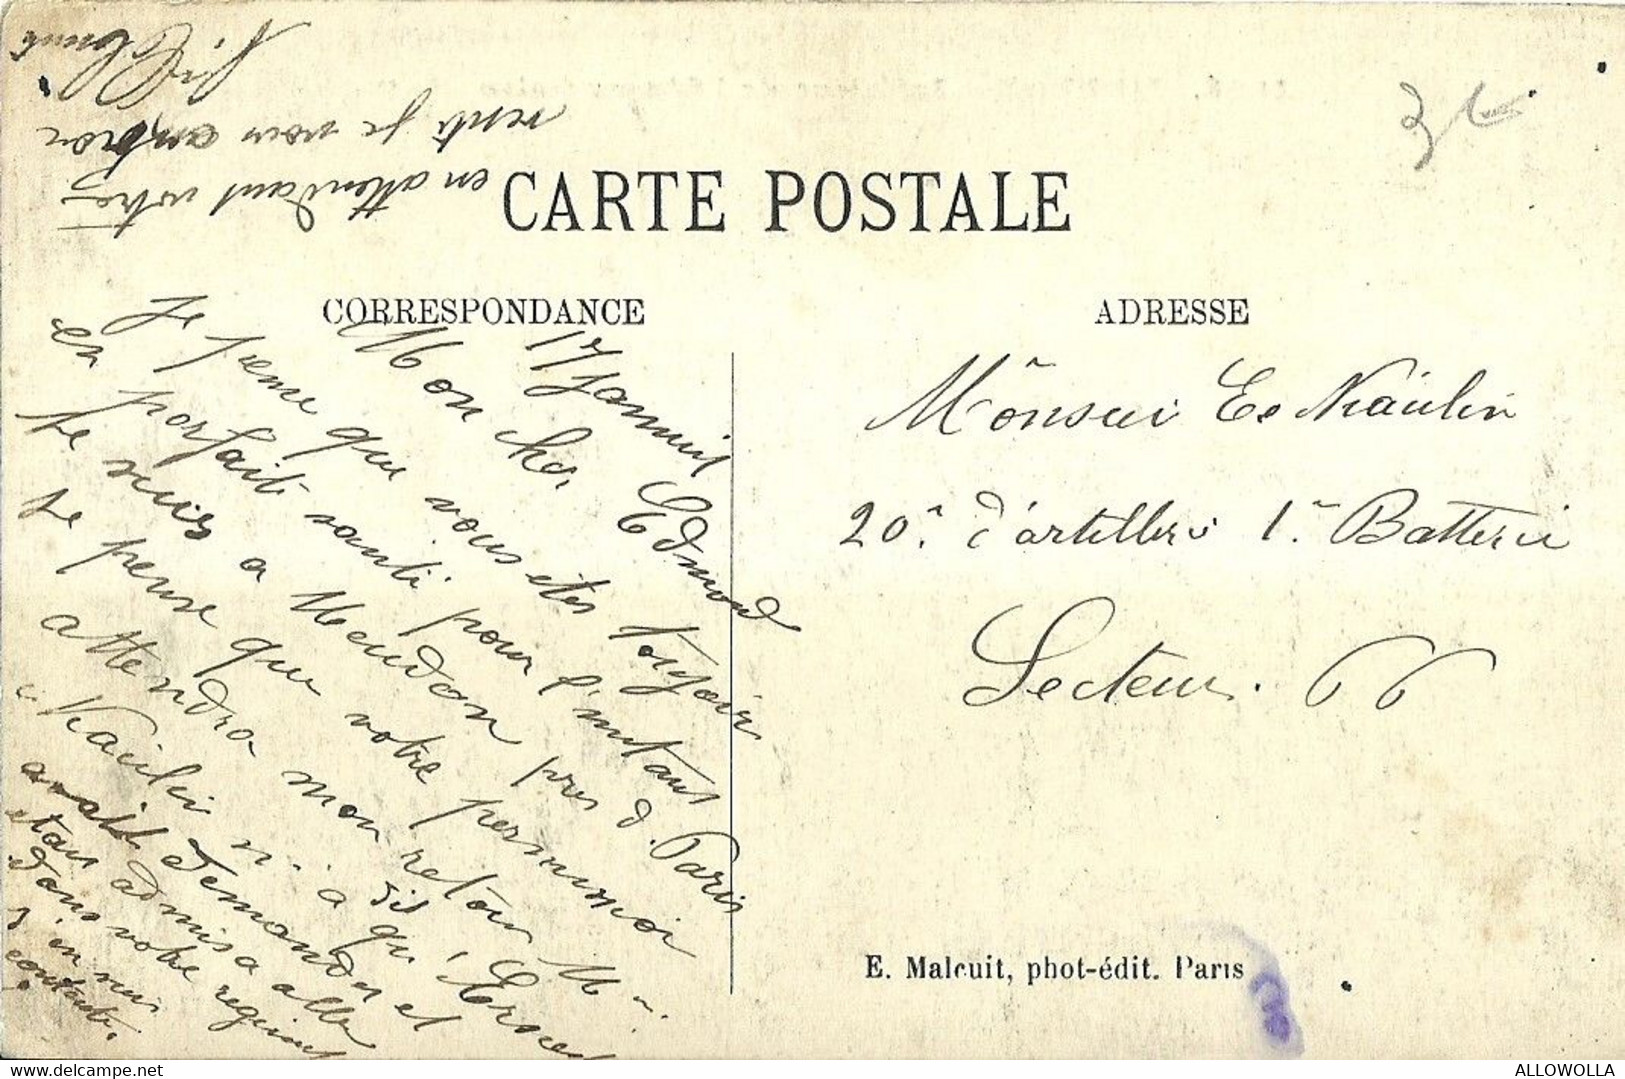 CARTE POSTALE
CORRESPONDANCE
ADRESSE
17 Janvier
Mon cher Edmond
Je pense que vous etes toujour
en parfait santé pour l'instant
Je suis a Meudon pres d. Paris
Je pense que votre permission
attendra mon retour Mr
Niaulin m'a dit qu'Ernest
avait demander et
etan admis a aller
dans votre regiment
J'en suis
contente
en attendant votre
venti je vous embras
Monsieu E. Niaulin
20e d'artillerie 1re Batterie
Secteur. 66
E. Malcuit, phot-édit. Paris
ALLOWOLLA